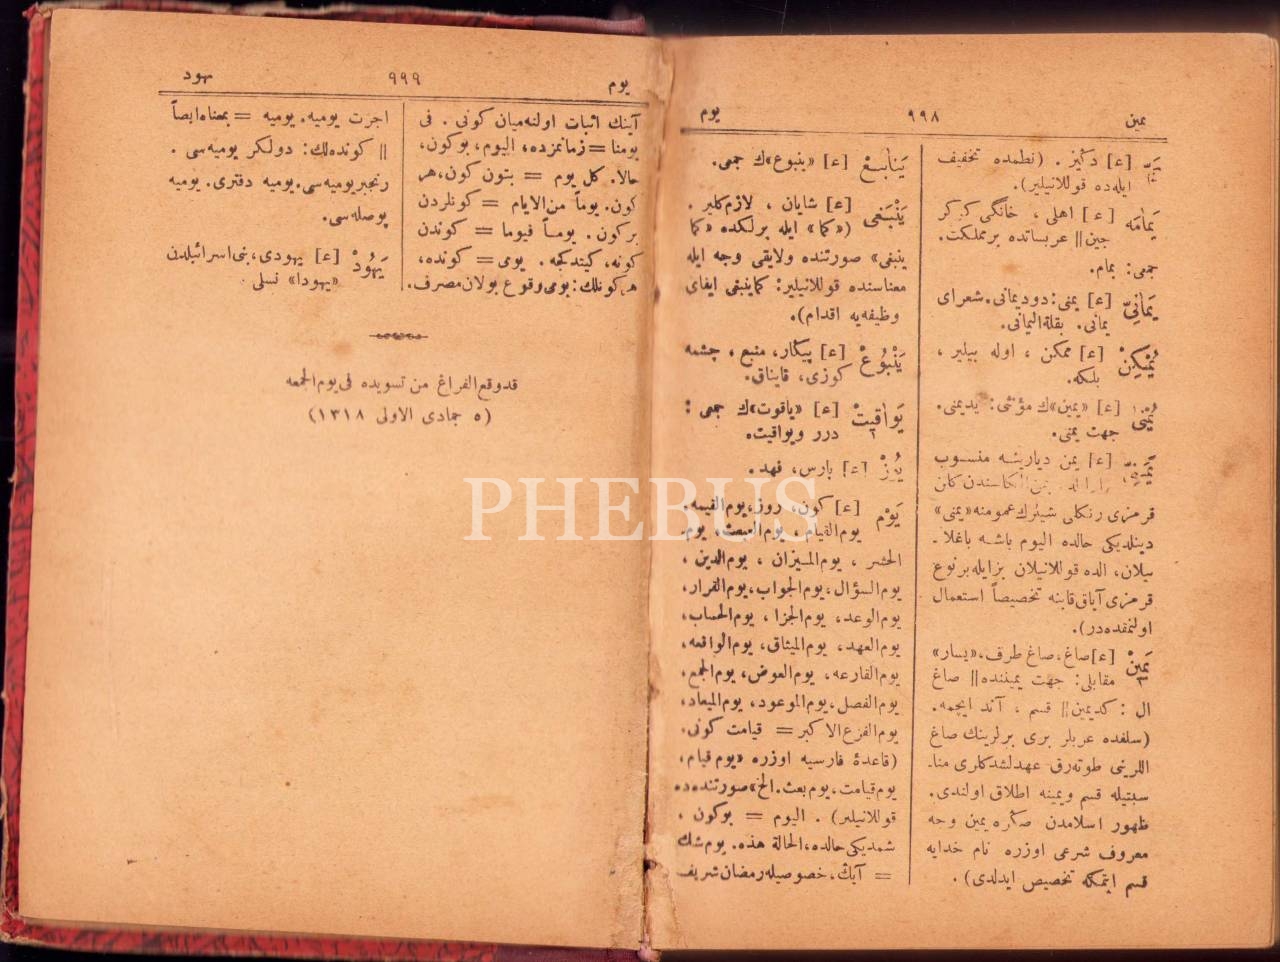 یمین ۹۹۸ یوم
یَمّ [ع] دکیز . (نظمده تخفیف
ایله‌ده قوللانیلیر).
یَمامَه [ع] اهلی ، خانگی کوکر
جین || عربستاده بر مملکت.
جمعی: یمام.
یَمانِیّ [ع] یمنی: دود یمانی. شعرای
یمانی. بقلة الیمانی.
یُمْکِنْ [ع] ممکن ، اوله بیلیر ،
بلکه.
یُمْنٰی [ع] «یمین»ك مؤنثی: ید یمنی.
جهت یمنی.
یَمَنِیّ [ع] یمن دیارینـه منسوب
قرمزی رنکلی شیئرك عمومنه «یمنی»
دینلدیکی حالده الیوم باشـه باغلا۔
ییلان، الده قوللانیلان بز ایله بر نوع
قرمزی آیاق قابنه تخصیصاً استعمال
اولنمقده‌در).
یَمینْ [ع] صاغ، صاغ طرف، «یسار»
مقابلی: جهت یمیننده || صاغ
ال : کد یمین || قسم ، آند ایچمه.
(سلفده عربلر بری برلرینك صاغ
اللرینی طوته‌رق عهدلشدکلری منا۔
سبتیله قسم و یمینه اطلاق اولندی.
ظهور اسلامدن صکره یمین وجه
معروف شرعی اوزره نام خدایه
قسم ایتمکه تخصیص ایدلدی) .
یَنابیعْ [ع] «ینبوع»ك جمعی.
یَنْبَغی [ع] شایان ، لازم‌کلیر .
(«کما» ایله برلکده «کما
ینبغی» صورتنده ولایقی وجه ایله
معناسنده قوللانیلیر: کما ینبغی ایفای
وظیفه‌یه اقدام).
یَنْبُوعْ [ع] پیکار، منبع ، چشمه
کوزی، قایناق.
یَواقیتْ [ع] «یاقوت»ك جمعی :
درر و یواقیت.
یُوزْ [ع] پارس، فهد.
یَوْم [ع] کون، روز، یوم القیمه.
یوم القیام ، یوم البعث، یوم
الحشر ، یوم المیزان ، یوم الدین ،
یوم السؤال، یوم الجواب، یوم القرار،
یوم الوعد، یوم الجزا ، یوم الحساب،
یوم العهد، یوم المیثاق، یوم الواقعه،
یوم القارعه، یوم العوض، یوم الجمع،
یوم الفصل، یوم الموعود، یوم المیعاد،
یوم الفزع الاکبر = قیامت کونی.
(قاعدۀ فارسیه اوزره «یوم قیام،
یوم قیامت، یوم بعث. الخ» صورتنده ده
قوللانیلیر) . الیوم = بوکون .
شمدیکی حالده، الحالة هذه. یوم شك
= آیك، خصوصیله رمضان شریف
یوم ۹۹۹ یهود
آینك اثبات اولنه‌میان کونی . فی
یومنا = زمانمزده، الیوم، بوکون،
حالا. کل یوم = بتون کون، هر
کون. یوماً من الایام = کونلردن
برکون. یومـاً فیوما = کوندن
کونه، کیتدکجه . یومی = کونده،
هر کونلك: یومی وقوع بولان مصرف.
اجرت یومیه. یومیه = بمعناه ایضاً
|| کونده‌لك: دولکر یومیه‌سی .
رنجبر یومیه‌سی. یومیه دفتری. یومیه
پوصله‌سی.
یَهُودْ [ع] یهودی، بنی اسرائیلدن
«یهودا» نسلی
قد وقع الفراغ من تسویده فی یوم الجمعه
(٥ جمادی الاولی ١٣١٨)
PHEBUS